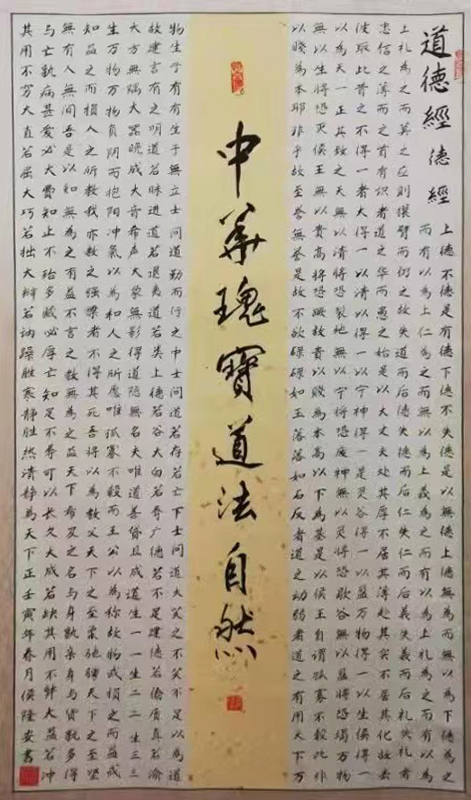 道德經 德經
上德不德是有德下德不失德是以無德上德無為而無以為下德為之
而有以為上仁為之而無以為上義為之而有以為上礼為之而有以為
上礼為之而莫之位則攘臂而仍之故失道而后德失德而后仁失仁而后義失義而后礼夫礼者
忠信之薄而之首有識者道之华而愚之始是以大丈夫处其厚不居其薄处其实不居其化故去
彼取此昔之不得一者大得一以清得一以宁神得一是灵谷得一以盈万物得一以生侯得一
以為天一正其致之天無以清將恐裂地無以宁將恐廢神無以灵將恐歇谷無以盈將恐竭万物
無以生將恐灭侯王無以貴高將恐蹶故貴以賤為本高以下為基是以侯王自谓孤寡不穀此非
以賤為本耶非乎故至誉無誉是故不欲碌碌如玉落落如石反者道之动弱者道之有用天下万
中華瑰寶道法自然
物生于有有生于無立士问道勤而行之中士问道若存若亡下士问道大笑之不笑不足以為道
故建言有之明道若昧进道若退夷道若类上德若谷大白若辱广德若不足建德若偷质真若渝
大方無隅大器晚成大音希声大象無影得道隱無名夫唯道善貸且成道生一一生二二生三三
生万物万物負阴而抱阳冲氣以為和人之所恶唯孤寡不穀而王公以為称故物或損之而益或
知益之而損人之所教我亦教之强梁者不得其死吾得以為教父天下之至柔驰骋天下之至堅
無有人無间吾是以知無為之有益不言之教無為之益天下希及之名与身孰亲身与貨孰多得
与亡孰病甚爱必大费知止不殆多藏必厚亡知足不辱可以长久大成若缺其用不弊大盈若冲
其用不穷大直若屈大巧若拙大辩若讷躁胜寒静胜热清静為天下正壬寅年春月侯隆安書